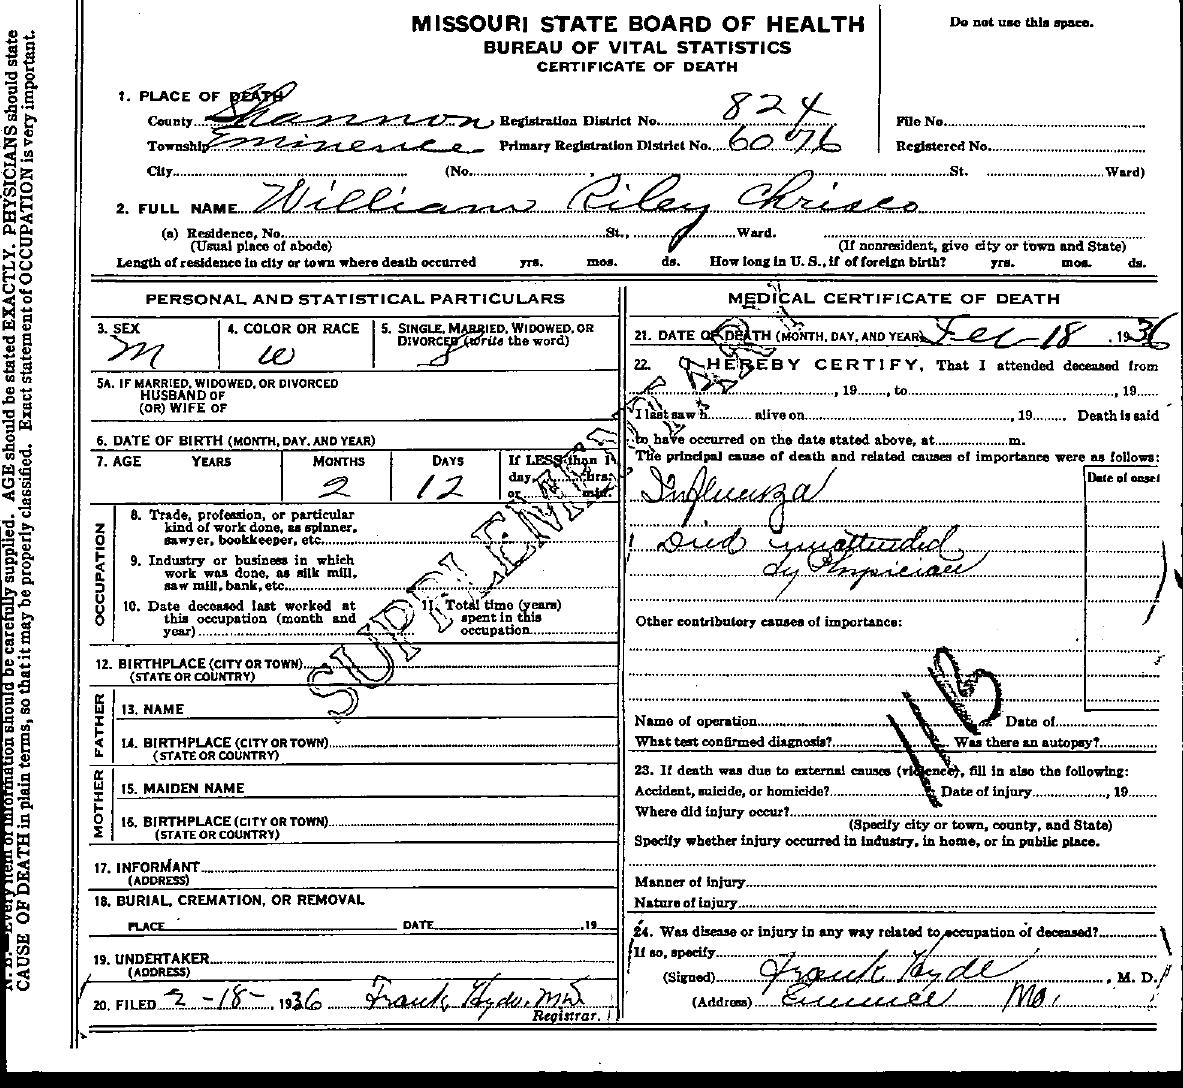 MISSOURI STATE BOARD OF HEALTH
BUREAU OF VITAL STATISTICS
CERTIFICATE OF DEATH
Do not use this space.
1. PLACE OF DEATH
County Shannon Registration District No. 824 File No.
Township Eminence Primary Registration District No. 6076 Registered No.
City (No. St. Ward)
2. FULL NAME William Riley Chrisco
(a) Residence, No. St., Ward.
(Usual place of abode) (If nonresident, give city or town and State)
Length of residence in city or town where death occurred yrs. mos. ds. How long in U. S., if of foreign birth? yrs. mos. ds.
PERSONAL AND STATISTICAL PARTICULARS
3. SEX 4. COLOR OR RACE 5. SINGLE, MARRIED, WIDOWED, OR
DIVORCED (write the word)
M W S
5A. IF MARRIED, WIDOWED, OR DIVORCED
HUSBAND OF
(OR) WIFE OF
6. DATE OF BIRTH (MONTH, DAY, AND YEAR)
7. AGE YEARS MONTHS DAYS If LESS than 1
day, hrs.
or min.
2 12
OCCUPATION
8. Trade, profession, or particular
kind of work done, as spinner,
sawyer, bookkeeper, etc.
9. Industry or business in which
work was done, as silk mill,
saw mill, bank, etc.
10. Date deceased last worked at
this occupation (month and
year)
11. Total time (years)
spent in this
occupation
12. BIRTHPLACE (CITY OR TOWN)
(STATE OR COUNTRY)
FATHER
13. NAME
14. BIRTHPLACE (CITY OR TOWN)
(STATE OR COUNTRY)
MOTHER
15. MAIDEN NAME
16. BIRTHPLACE (CITY OR TOWN)
(STATE OR COUNTRY)
17. INFORMANT
(ADDRESS)
18. BURIAL, CREMATION, OR REMOVAL
PLACE DATE , 19
19. UNDERTAKER
(ADDRESS)
20. FILED 2-18- , 1936 Frank Hyde, MD
Registrar.
MEDICAL CERTIFICATE OF DEATH
21. DATE OF DEATH (MONTH, DAY, AND YEAR) Feb-18 , 1936
22. I HEREBY CERTIFY, That I attended deceased from
, 19 , to , 19
I last saw h alive on , 19 Death is said
to have occurred on the date stated above, at m.
The principal cause of death and related causes of importance were as follows:
Date of onset
Influenza
Died unattended
by Physician
Other contributory causes of importance:
Name of operation Date of
What test confirmed diagnosis? Was there an autopsy?
23. If death was due to external causes (violence), fill in also the following:
Accident, suicide, or homicide? Date of injury , 19
Where did injury occur?
(Specify city or town, county, and State)
Specify whether injury occurred in industry, in home, or in public place.
Manner of injury
Nature of injury
24. Was disease or injury in any way related to occupation of deceased?
If so, specify
(Signed) Frank Hyde , M. D.
(Address) Mo.
SUPPLEMENTARY
11B
N. B.—Every item of information should be carefully supplied. AGE should be stated EXACTLY. PHYSICIANS should state
CAUSE OF DEATH in plain terms, so that it may be properly classified. Exact statement of OCCUPATION is very important.